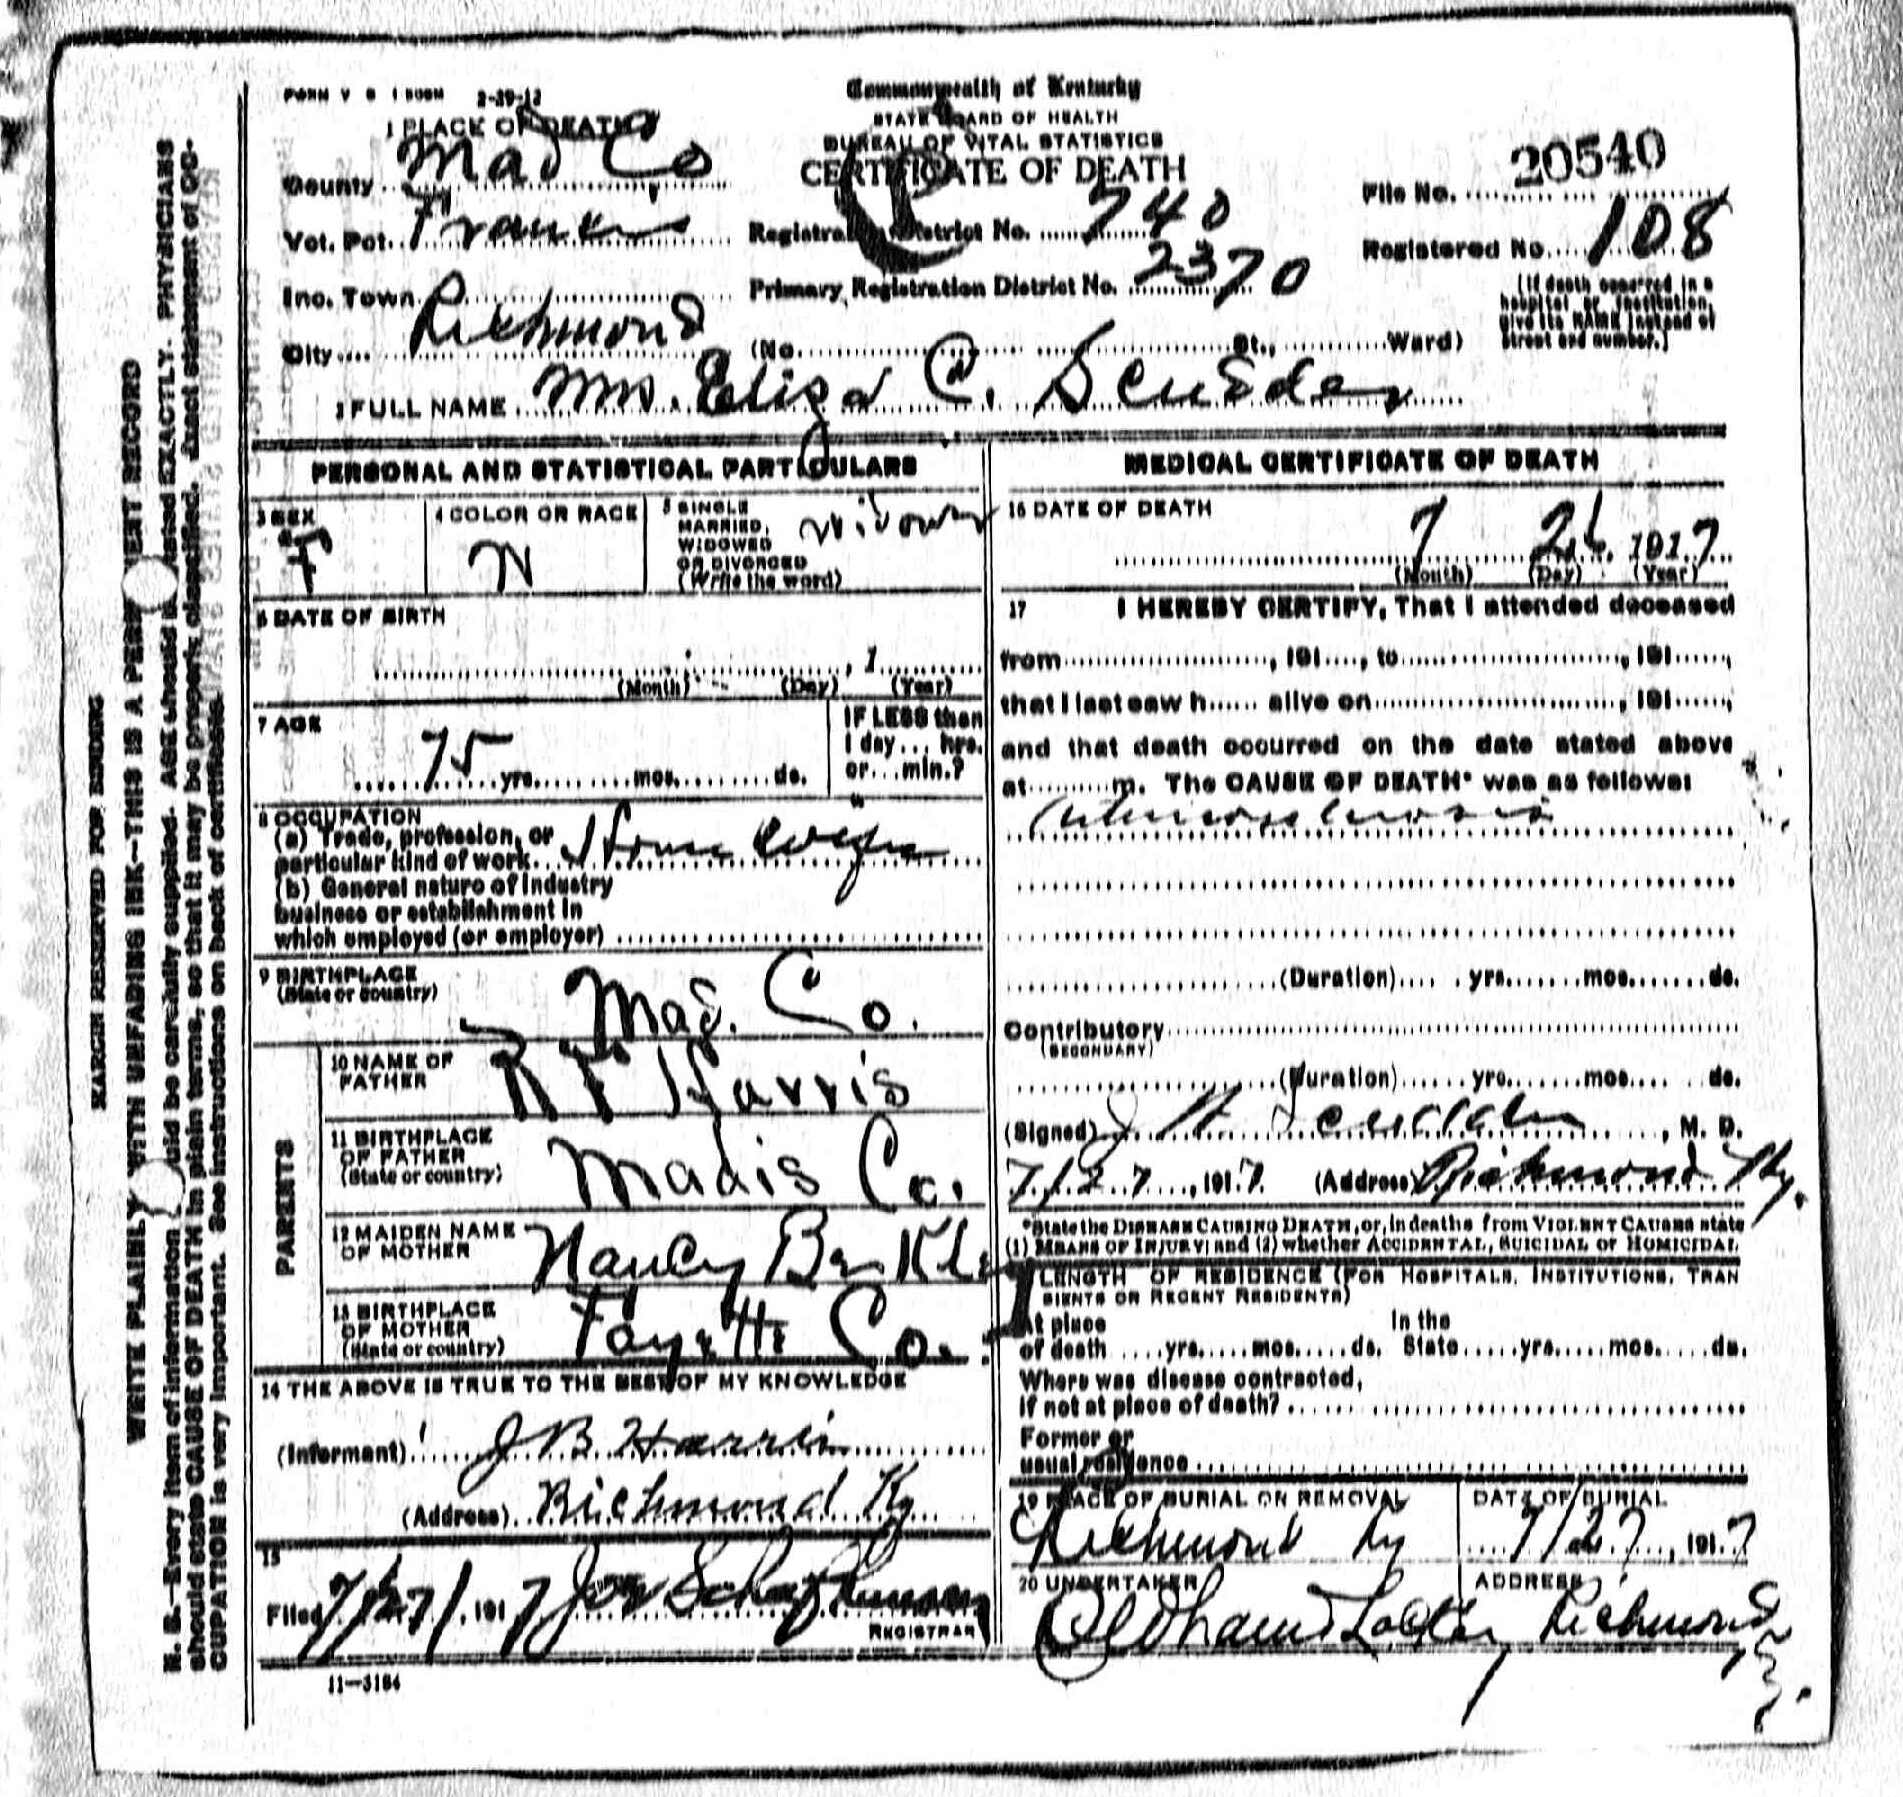 FORM V S 1 500M 2-29-12
Commonwealth of Kentucky
STATE BOARD OF HEALTH
BUREAU OF VITAL STATISTICS
CERTIFICATE OF DEATH
1 PLACE OF DEATH
County Mad Co
Vot. Pct.
Inc. Town
City Richmond (No. St., Ward)
Registration District No. 740
Primary Registration District No. 2370
File No. 20540
Registered No. 108
(If death occurred in a
hospital or institution,
give its NAME instead of
street and number.)
2 FULL NAME Mrs. Eliza C. Scudder
PERSONAL AND STATISTICAL PARTICULARS
3 SEX
F
4 COLOR OR RACE
W
5 SINGLE
MARRIED,
WIDOWED
OR DIVORCED
(Write the word)
Widow
6 DATE OF BIRTH
, 1
(Month) (Day) (Year)
7 AGE
75 yrs. mos. ds.
IF LESS than
1 day ... hrs.
or ... min.?
8 OCCUPATION
(a) Trade, profession, or
particular kind of work House Wife
(b) General nature of industry
business or establishment in
which employed (or employer)
9 BIRTHPLACE
(State or country)
Mad. Co.
PARENTS
10 NAME OF
FATHER
Harris
11 BIRTHPLACE
OF FATHER
(State or country)
Madis Co.
12 MAIDEN NAME
OF MOTHER
Nancy
13 BIRTHPLACE
OF MOTHER
(State or country)
Fayette Co.
14 THE ABOVE IS TRUE TO THE BEST OF MY KNOWLEDGE
(Informant) J B. Harris
(Address) Richmond Ky
15
Filed 7/27/ 1917
REGISTRAR
11-3184
MEDICAL CERTIFICATE OF DEATH
16 DATE OF DEATH
7 26 1917
(Month) (Day) (Year)
17 I HEREBY CERTIFY, That I attended deceased
from , 191 , to , 191 ,
that I last saw h alive on , 191 ,
and that death occurred on the date stated above
at m. The CAUSE OF DEATH* was as follows:
(Duration) yrs. mos. ds.
Contributory
(SECONDARY)
(Duration) yrs. mos. ds.
(Signed) Scudder, M. D.
7/27, 1917. (Address) Richmond Ky.
*State the DISEASE CAUSING DEATH, or, in deaths from VIOLENT CAUSES state
(1) MEANS OF INJURY; and (2) whether ACCIDENTAL, SUICIDAL or HOMICIDAL
LENGTH OF RESIDENCE (FOR HOSPITALS, INSTITUTIONS, TRAN
SIENTS OR RECENT RESIDENTS)
At place In the
of death yrs. mos. ds. State yrs. mos. ds.
Where was disease contracted,
if not at place of death?
Former or
usual residence
19 PLACE OF BURIAL OR REMOVAL
Richmond Ky
DATE OF BURIAL
7/27, 1917
20 UNDERTAKER
Oldham
ADDRESS
Richmond
MARGIN RESERVED FOR BINDING
WRITE PLAINLY WITH UNFADING INK—THIS IS A PERMANENT RECORD
N. B.—Every item of information should be carefully supplied. AGE should be stated EXACTLY. PHYSICIANS
should state CAUSE OF DEATH in plain terms, so that it may be properly classified. Exact statement of OC-
CUPATION is very important. See instructions on back of certificate.